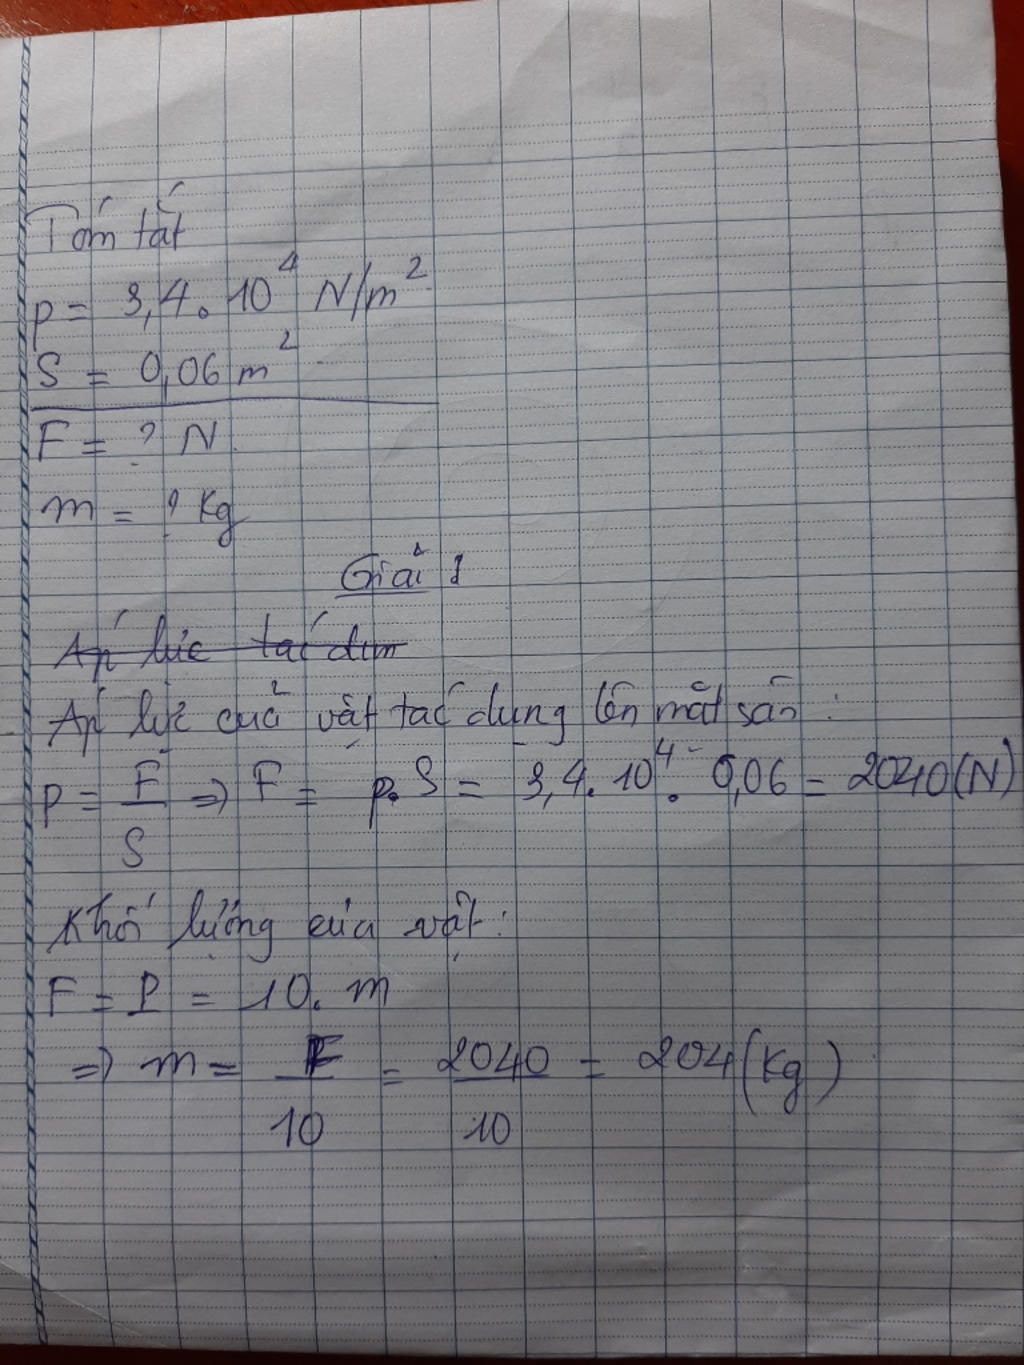 Tóm tắt
p = 3,4.10⁴ N/m²
S = 0,06 m²
F = ? N
m = ? Kg
Giải
Áp lực tác dụn
Áp lực của vật tác dụng lên mặt sàn:
p = F/S => F = p.S = 3,4.10⁴.0,06 = 2040(N)
Khối lượng của vật:
F = P = 10.m
=> m = F/10 = 2040/10 = 204(Kg)